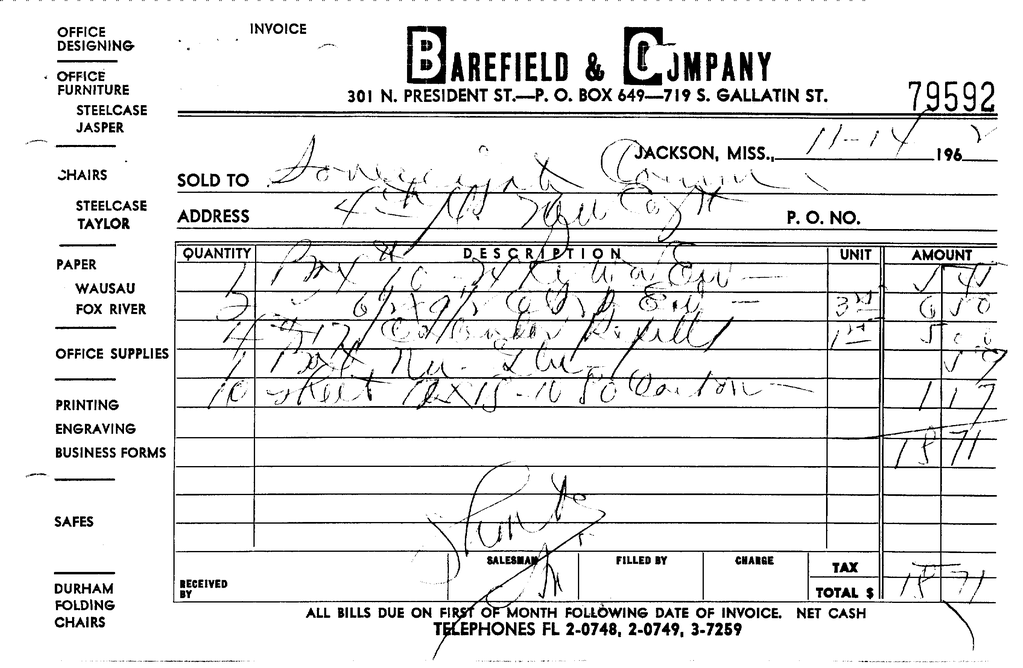 INVOICE
BAREFIELD & COMPANY
301 N. PRESIDENT ST.—P. O. BOX 649—719 S. GALLATIN ST.
79592
JACKSON, MISS., 11-14 1962
SOLD TO Sovereignty Comm.
ADDRESS 4th P. O. NO.
QUANTITY DESCRIPTION UNIT AMOUNT
1 Box #10 - 24 Env — 5 45
2 6 x 9 Env — 3 6 50
4 # 17 5 00
1 Box 59
10 Sheet 12x15 Carbon — 1 17
18 71
RECEIVED BY SALESMAN FILLED BY CHARGE
TAX
TOTAL $ 18 71
ALL BILLS DUE ON FIRST OF MONTH FOLLOWING DATE OF INVOICE. NET CASH
TELEPHONES FL 2-0748, 2-0749, 3-7259
OFFICE
DESIGNING
OFFICE
FURNITURE
STEELCASE
JASPER
CHAIRS
STEELCASE
TAYLOR
PAPER
WAUSAU
FOX RIVER
OFFICE SUPPLIES
PRINTING
ENGRAVING
BUSINESS FORMS
SAFES
DURHAM
FOLDING
CHAIRS